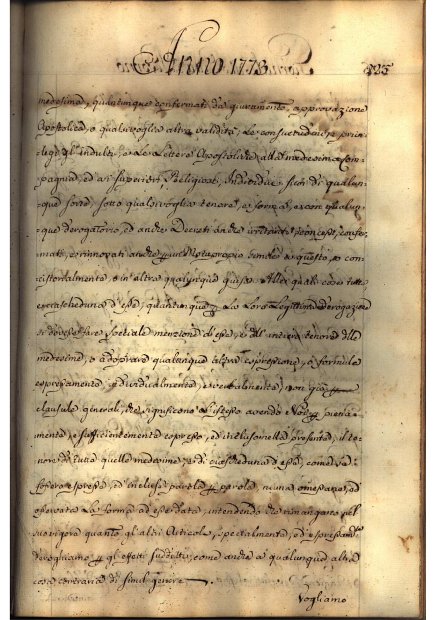 Anno 1773
medesima, quantunque confermati da giuramento, approvazione
Apostolica, o qualsivoglia altra validità; Le consuetudini, e privi-
legi, gl'Indulti, e Le Lettere Apostoliche alla medesima Com-
pagnia, ed ai Superiori, Religiosi, Individui suoi di qualun-
que sorte, sotto qualsivoglia tenore, e forma, e con qualun-
que derogatorio, ed anche Decreti anche irritanti concessi, confer-
mati, e rinnovati anche Motuproprio simile a questo, o con-
cistorialmente, o in altra qualunque guisa. Alle quali cose tutte
e ciascheduna d'esse, quantunque La Loro Legittima derogazione
si dovesse fare speciale menzione di esse, e dell'intiero tenore delle
medesime, o adoprare qualunque altra espressione, o formula
espressamente, individualmente, non già
clausule generali, che significano l'istesso avendo Noi piena-
mente, e sufficientemente espresso, ed inclusa nella presente, il te-
nore di tutte quelle medesime, e di ciascheduna d'esse, come se
fossero espresse, ed incluse parola parola, niuna omessane, ed
osservata La forma ad esse data, intendendo che rimangano nel
suo vigore quanto gli altri Articoli, specialmente, ed espressamte
deroghiamo gli effetti suddetti, come anche a qualunque altra
cosa contraria di simil genere.
Vogliamo